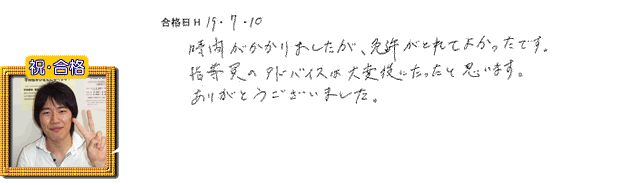 合格日 H 19・7・10
時間がかかりましたが、免許がとれてよかったです。
指導員のアドバイスは大変役にたったと思います。
ありがとうございました。
祝・合格